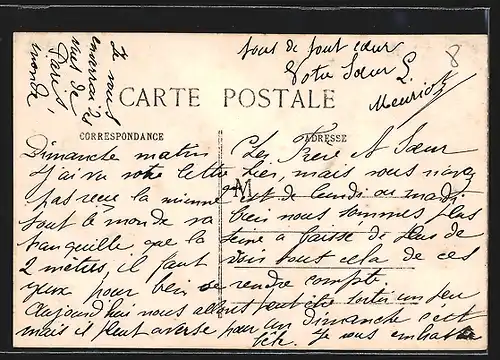 Je vous
enverrai 2 es
vues de
Paris
monde,
vous de tout cœur
Votre Sœur L.
Meuriot
8
CARTE POSTALE
CORRESPONDANCE
ADRESSE
Dimanche matin Cher Frere et Sœur
J'ai vu votre lettre hier, mais vous n'avez
M
pas reçu la mienne est de lundi ou mardi
tout le monde va bien nous sommes plus
tranquille que la seine a baissé de plus de
2 mètres, il faut voir tout cela de ces
yeux pour bien se rendre compte
Aujourd'hui nous allons peut être sortir un peu
mais il pleut averse pour un Dimanche c'est
Je vous embrasse